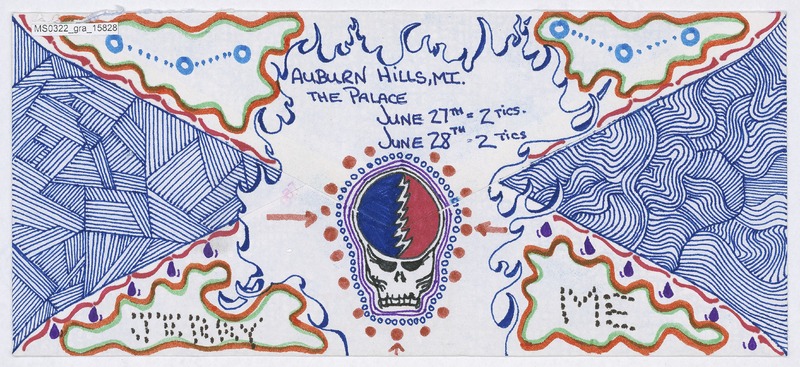 MS0322_gra_15828
AUBURN HILLS, MI.
THE PALACE
JUNE 27TH = 2 TICS.
JUNE 28TH = 2 TICS
JERRY
ME